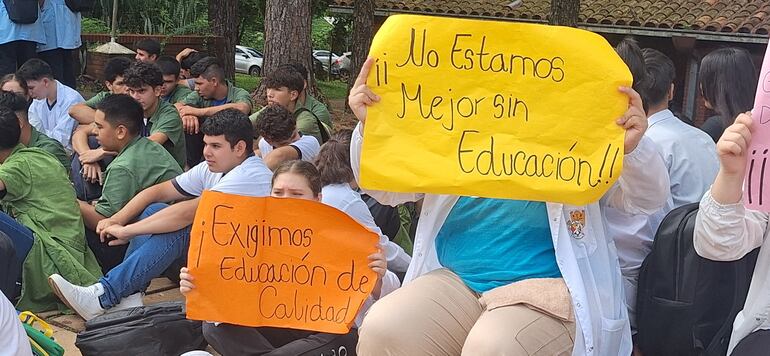 ¡¡No Estamos
Mejor sin
Educación!!
¡Exigimos
Educación de
Calidad